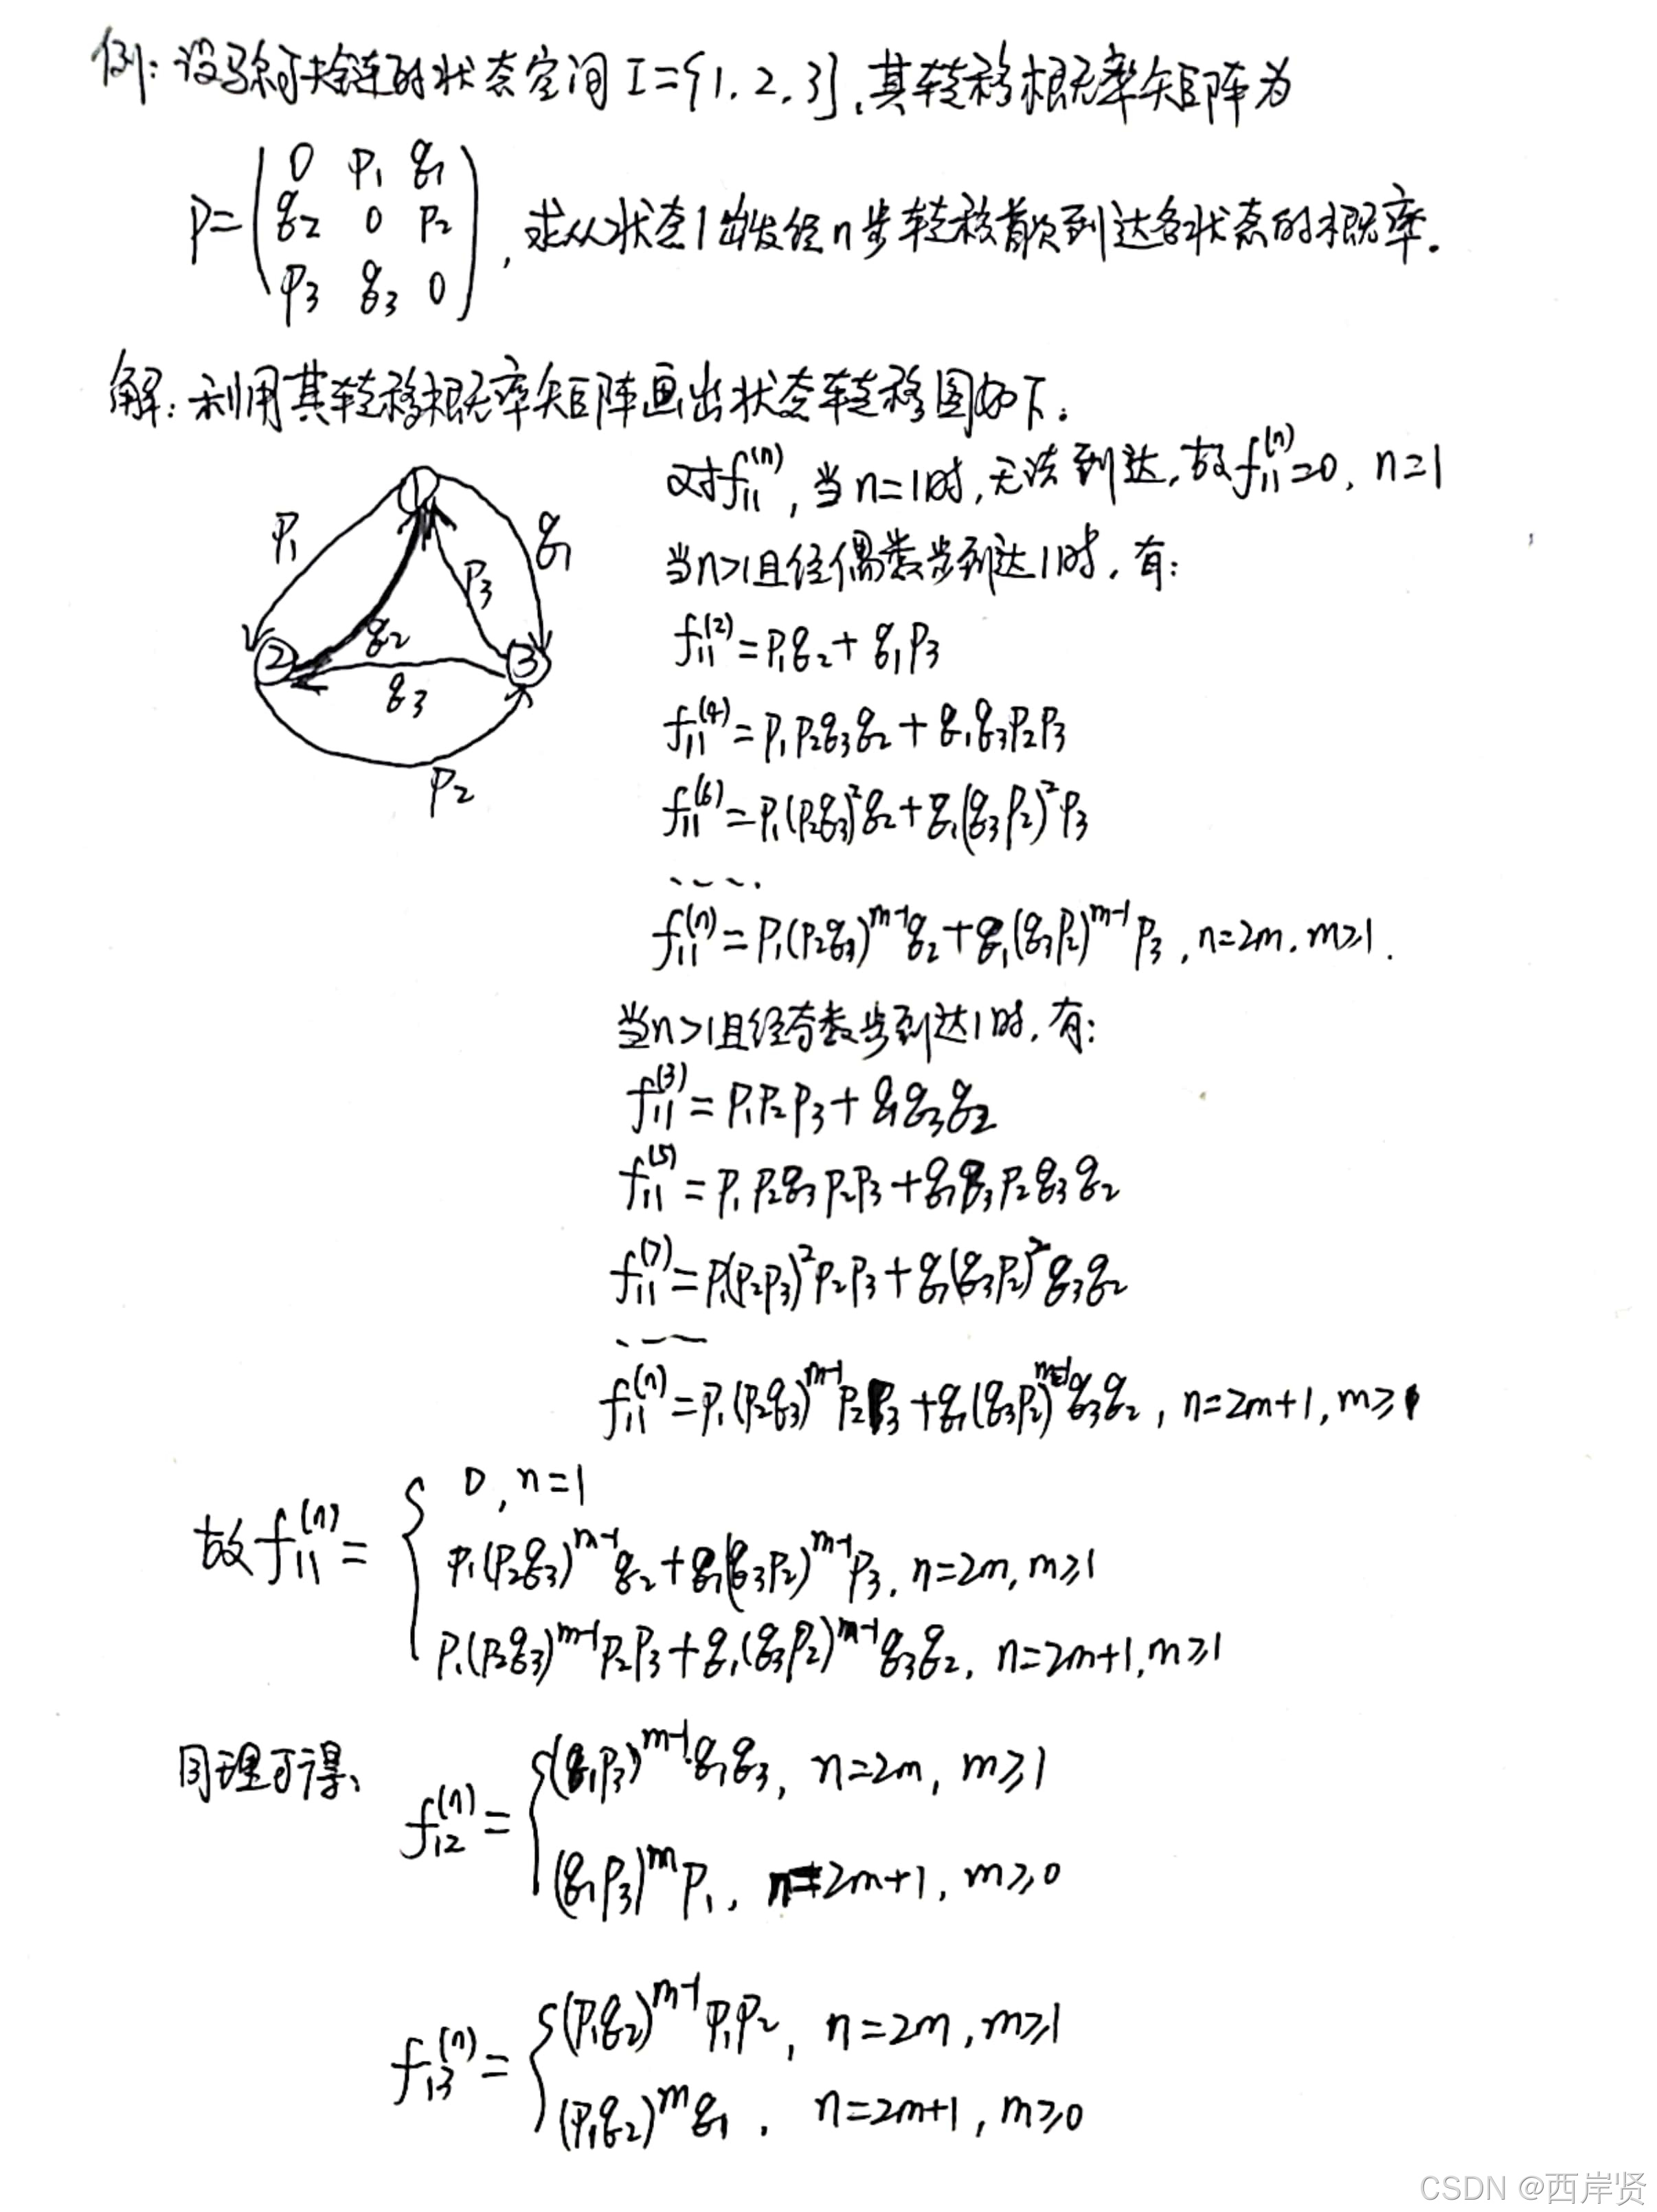 例：设马尔可夫链的状态空间 I={1, 2, 3}, 其转移概率矩阵为
P=
0 p₁ q₁
q₂ 0 p₂
p₃ q₃ 0
, 求从状态1出发经n步转移首次到达各状态的概率.
解：利用其转移概率矩阵画出状态转移图如下:
1
p₁
q₁
p₃
2
q₂
3
q₃
p₂
对f₁₁⁽ⁿ⁾, 当n=1时, 无法到达, 故f₁₁⁽ⁿ⁾=0, n=1
当n>1且经偶数步到达1时, 有:
f₁₁⁽²⁾=p₁q₂+q₁p₃
f₁₁⁽⁴⁾=p₁p₂q₃q₂+q₁q₃p₂p₃
f₁₁⁽⁶⁾=p₁(p₂q₃)²q₂+q₁(q₃p₂)²p₃
....
f₁₁⁽ⁿ⁾=p₁(p₂q₃)ᵐ⁻¹q₂+q₁(q₃p₂)ᵐ⁻¹p₃, n=2m, m≥1.
当n>1且经奇数步到达1时, 有:
f₁₁⁽³⁾=p₁p₂p₃+q₁q₃q₂
f₁₁⁽⁵⁾=p₁p₂q₃p₂p₃+q₁q₃p₂q₃q₂
f₁₁⁽⁷⁾=p₁(p₂p₃)²p₂p₃+q₁(q₃p₂)²q₃q₂
....
f₁₁⁽ⁿ⁾=p₁(p₂q₃)ᵐ⁻¹p₂p₃+q₁(q₃p₂)ᵐ⁻¹q₃q₂, n=2m+1, m≥1
故f₁₁⁽ⁿ⁾=
0, n=1
p₁(p₂q₃)ᵐ⁻¹q₂+q₁(q₃p₂)ᵐ⁻¹p₃, n=2m, m≥1
p₁(p₂q₃)ᵐ⁻¹p₂p₃+q₁(q₃p₂)ᵐ⁻¹q₃q₂, n=2m+1, m≥1
同理可得:
f₁₂⁽ⁿ⁾=
(q₁p₃)ᵐ⁻¹q₁q₃, n=2m, m≥1
(q₁p₃)ᵐp₁, n=2m+1, m≥0
f₁₃⁽ⁿ⁾=
(p₁q₂)ᵐ⁻¹p₁p₂, n=2m, m≥1
(p₁q₂)ᵐq₁, n=2m+1, m≥0
CSDN @西岸贤